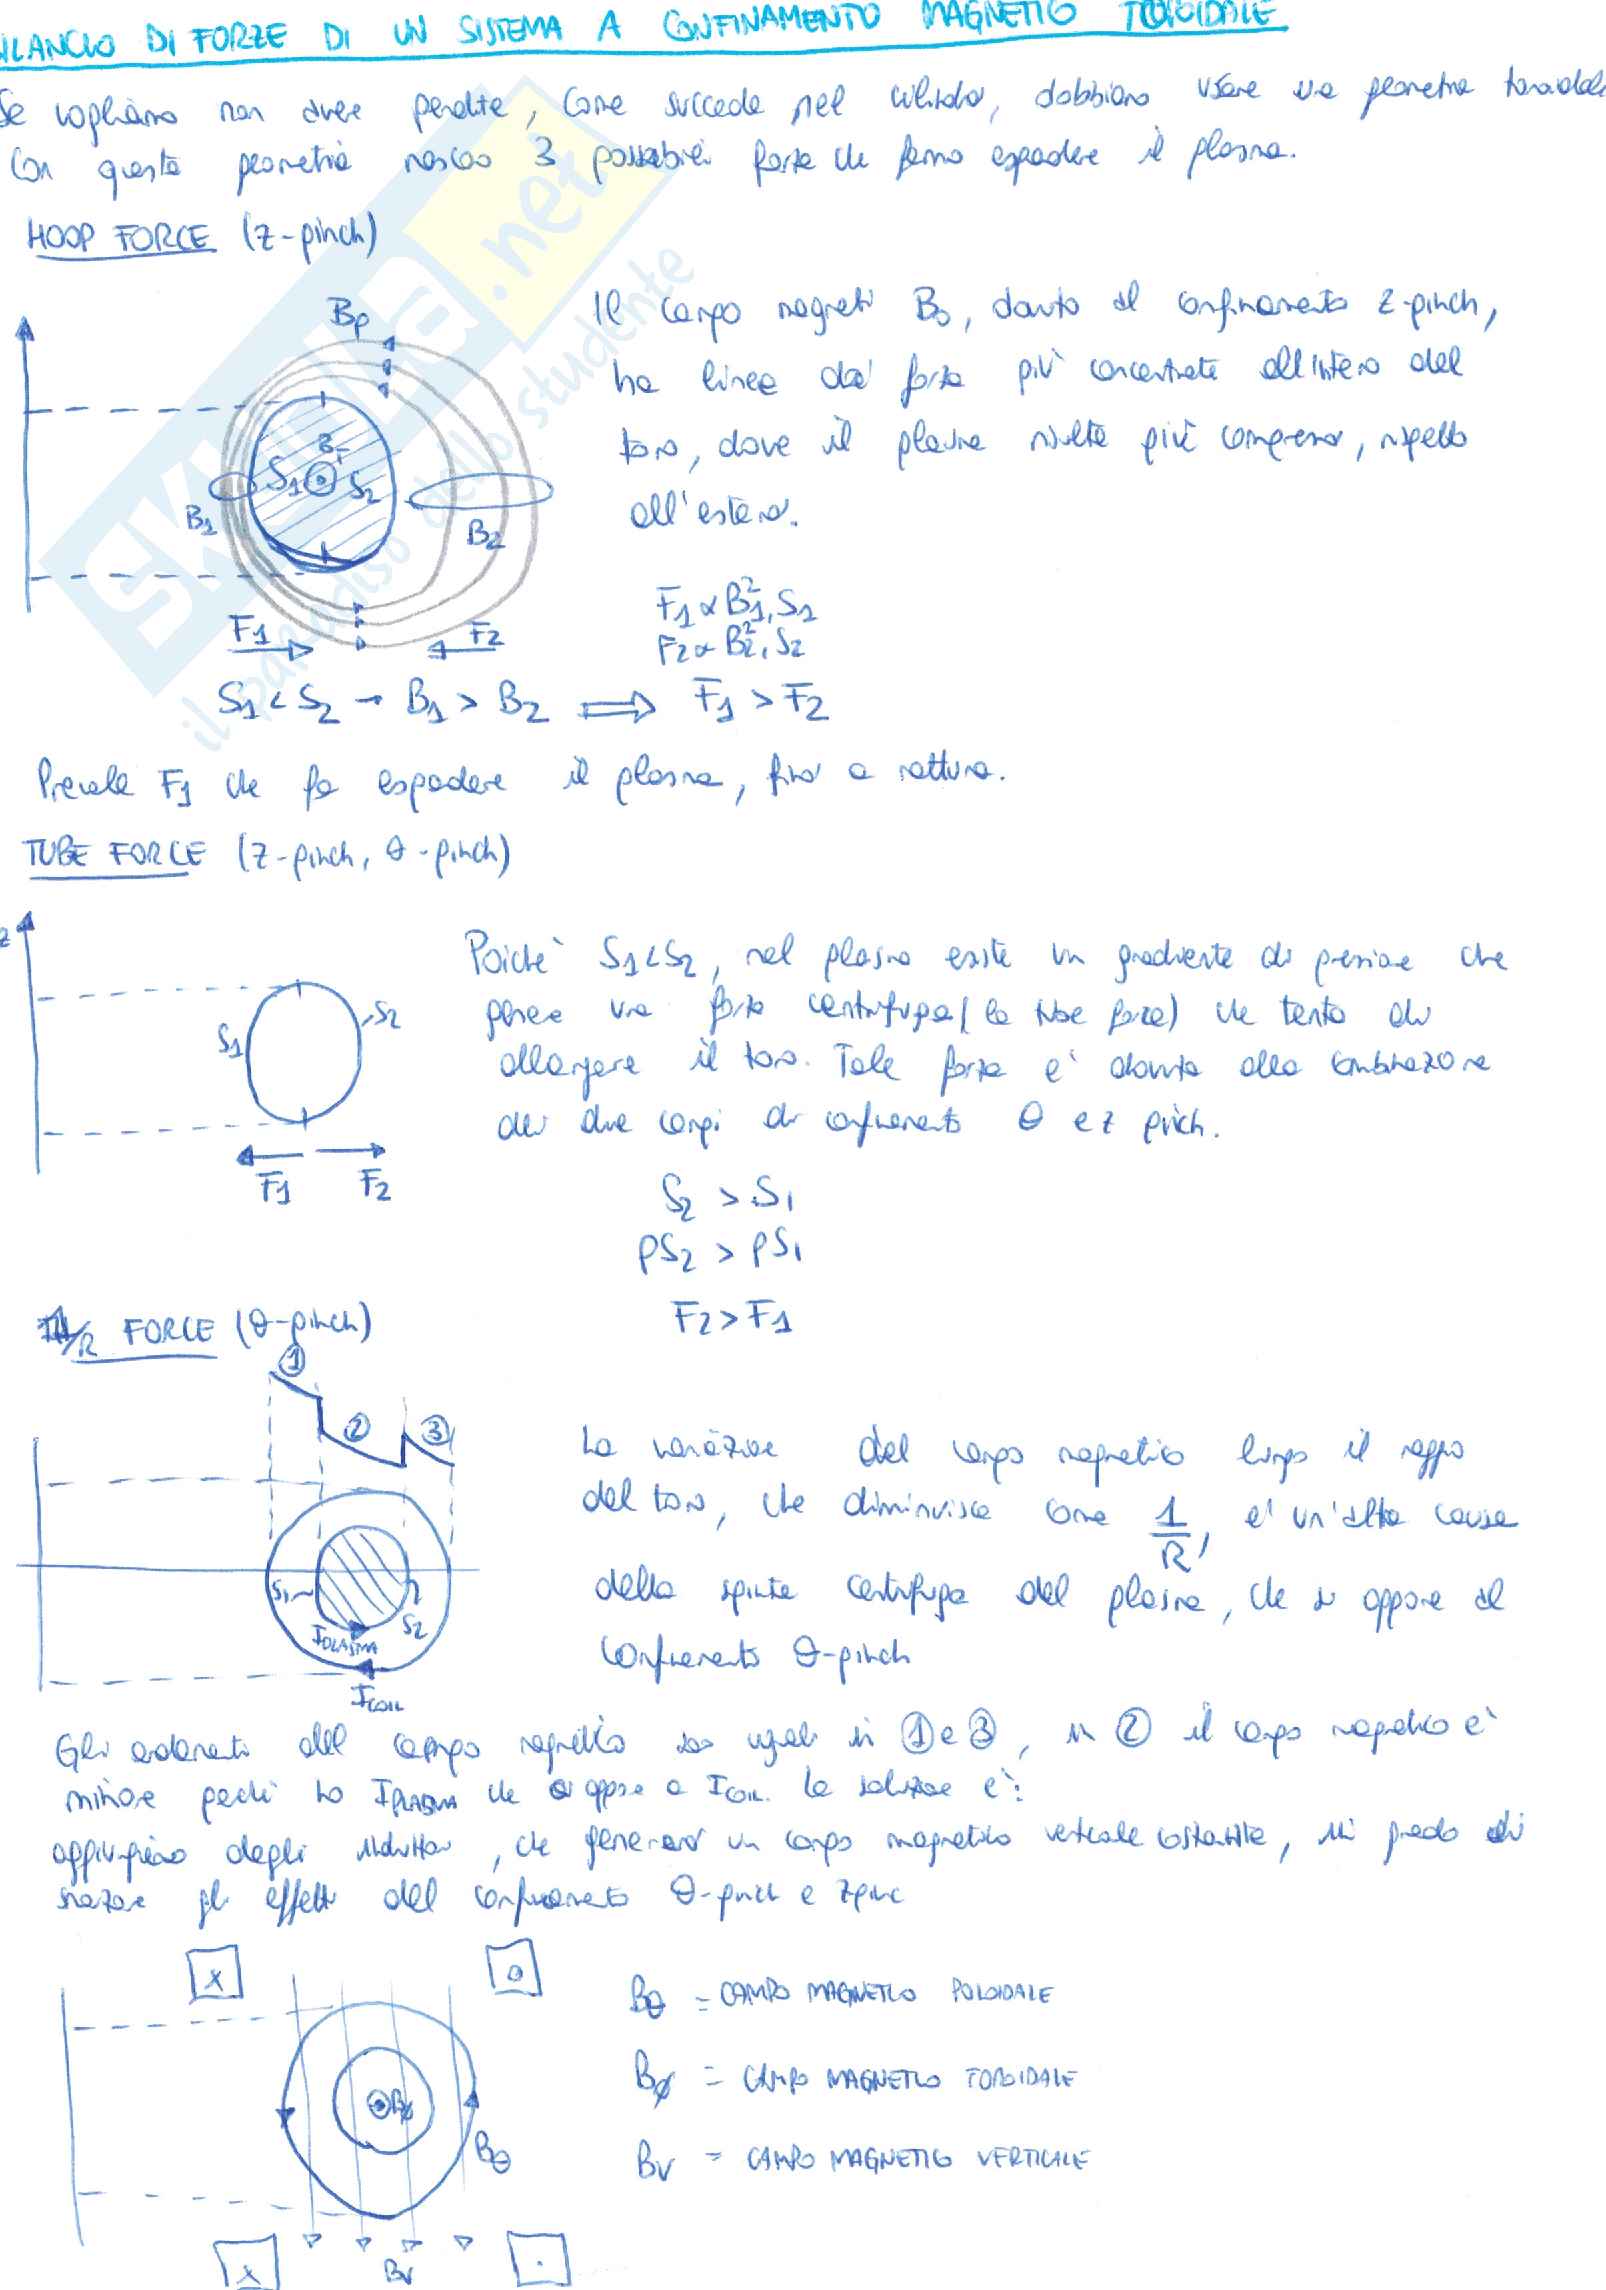 BILANCIO DI FORZE DI UN SISTEMA A CONFINAMENTO MAGNETICO TOROIDALE
Se vogliamo non avere perdite, come succede nel cilindro, dobbiamo usare una geometria toroidale
Con questa geometria nascono 3 possibili forze che fanno espandere il plasma.
HOOP FORCE (z-pinch)
Il campo magneti B, dovuto al confinamento z-pinch,
ha linee di forza più concentrate all'interno del
toro, dove il plasma risulta più compresso, rispetto
all'esterno.
Bp
S1
S2
B1
B2
F1
F2
F1 ∝ B1², S1
F2 ∝ B2², S2
S1 < S2 → B1 > B2 ⇒ F1 > F2
Prevale F1 che fa espandere il plasma, fino a rottura.
TUBE FORCE (z-pinch, θ-pinch)
z
S1
S2
F1
F2
Poichè S1<S2, nel plasma esiste un gradiente di pressione che
genera una forza centrifuga (la tube force) che tenta di
allargare il toro. Tale forza e' dovuta alla combinazione
dei due campi di confinamento θ e z pinch.
S2 > S1
pS2 > pS1
F2 > F1
1/R FORCE (θ-pinch)
① ② ③
S1
S2
IPLASMA
ICOIL
La variazione del campo magnetico lungo il raggio
del toro, che diminuisce come 1/R, e' un'altra causa
della spinta centrifuga del plasma, che si oppone al
confinamento θ-pinch
Gli andamenti del campo magnetico sono uguali in ① e ③, in ② il campo magnetico è
minore perchè ho IPLASMA che si oppone a ICOIL. La soluzione è:
aggiungiamo degli induttori, che generano un campo magnetico verticale costante, in grado di
gli effetti del confinamento θ-pinch e zpinc
X
X
Bφ
Bθ
Bv
Bθ = CAMPO MAGNETICO POLOIDALE
Bφ = CAMPO MAGNETICO TOROIDALE
Bv = CAMPO MAGNETICO VERTICALE
SKUOLA.net
il paradiso dello studente